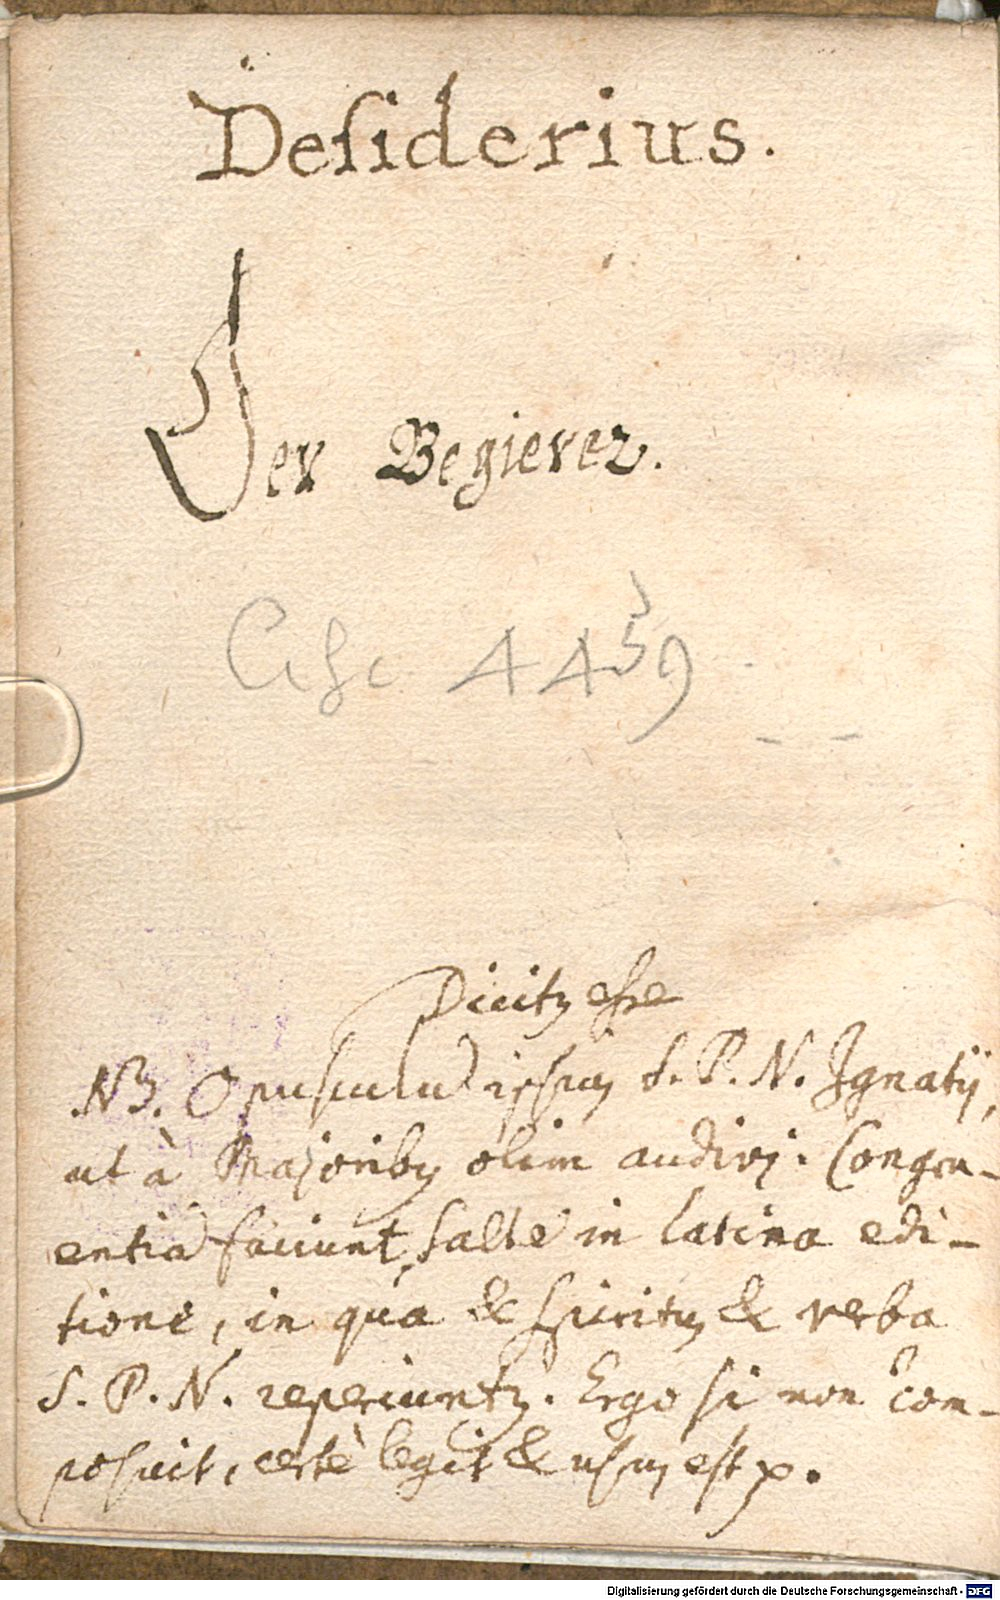 Desiderius.
Der Begierer.
Asc. 4459
Dicitꝫ esse
NB. Opusculū ipsius S. P. N. Ignatij,
ut à Majoribꝫ olim audivj. Congru-
entiā faciunt, saltē in latina edi-
tione, in qua & Spiritꝫ & verba
S. P. N. reperiuntꝫ. Ergo si non com-
posuit, certè legit & usus est
Digitalisierung gefördert durch die Deutsche Forschungsgemeinschaft - DFG